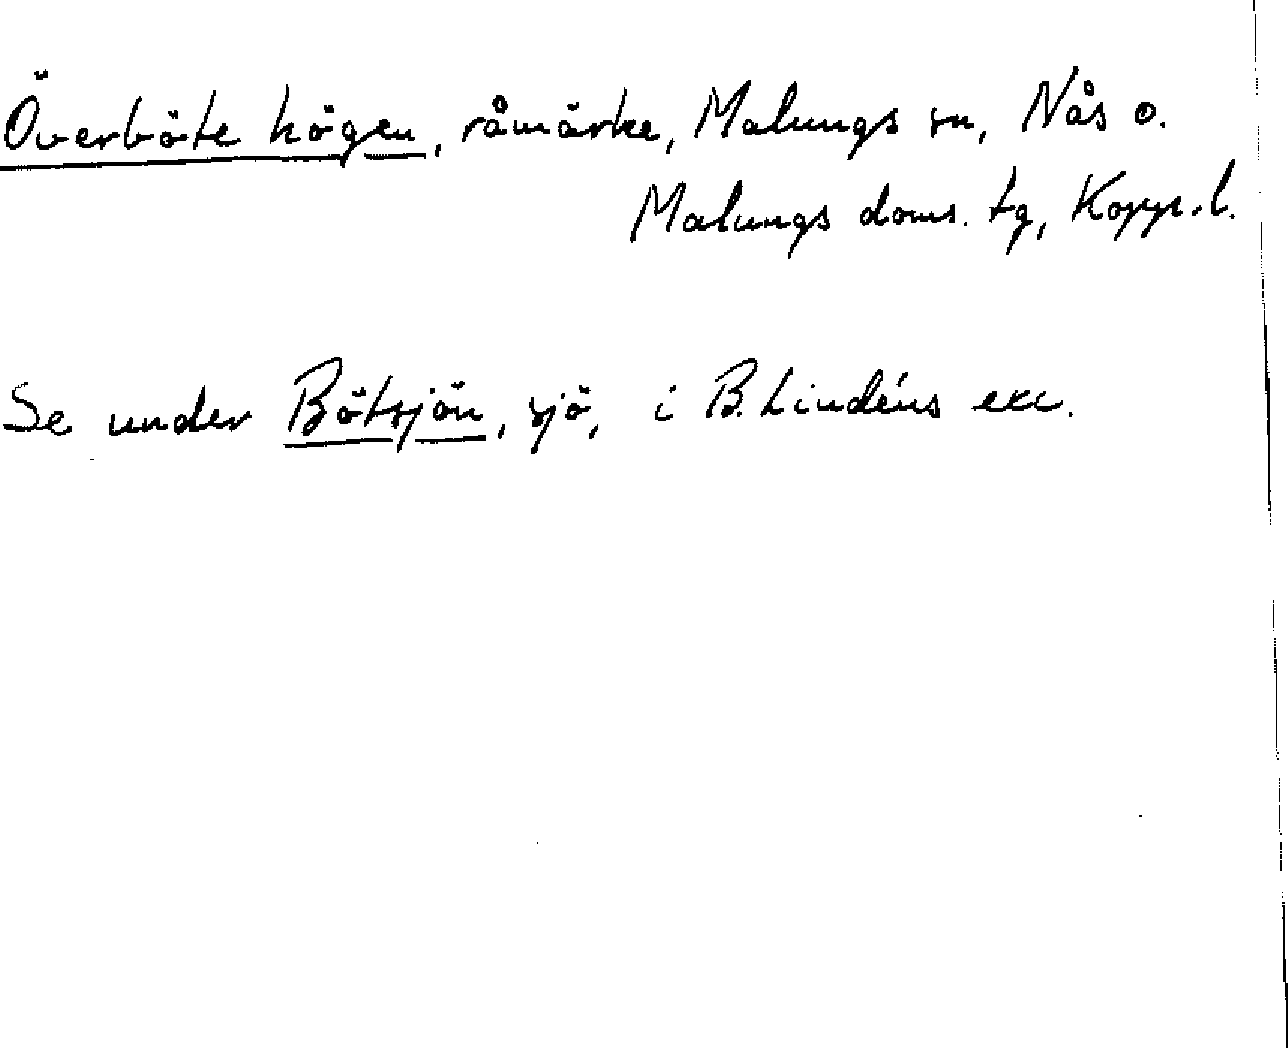 Överböte högen, råmärke, Malungs sn, Nås o.
Malungs doms. tg, Kopp. l.
Se under Bötsjön, sjö, i B. Lindéns exc.